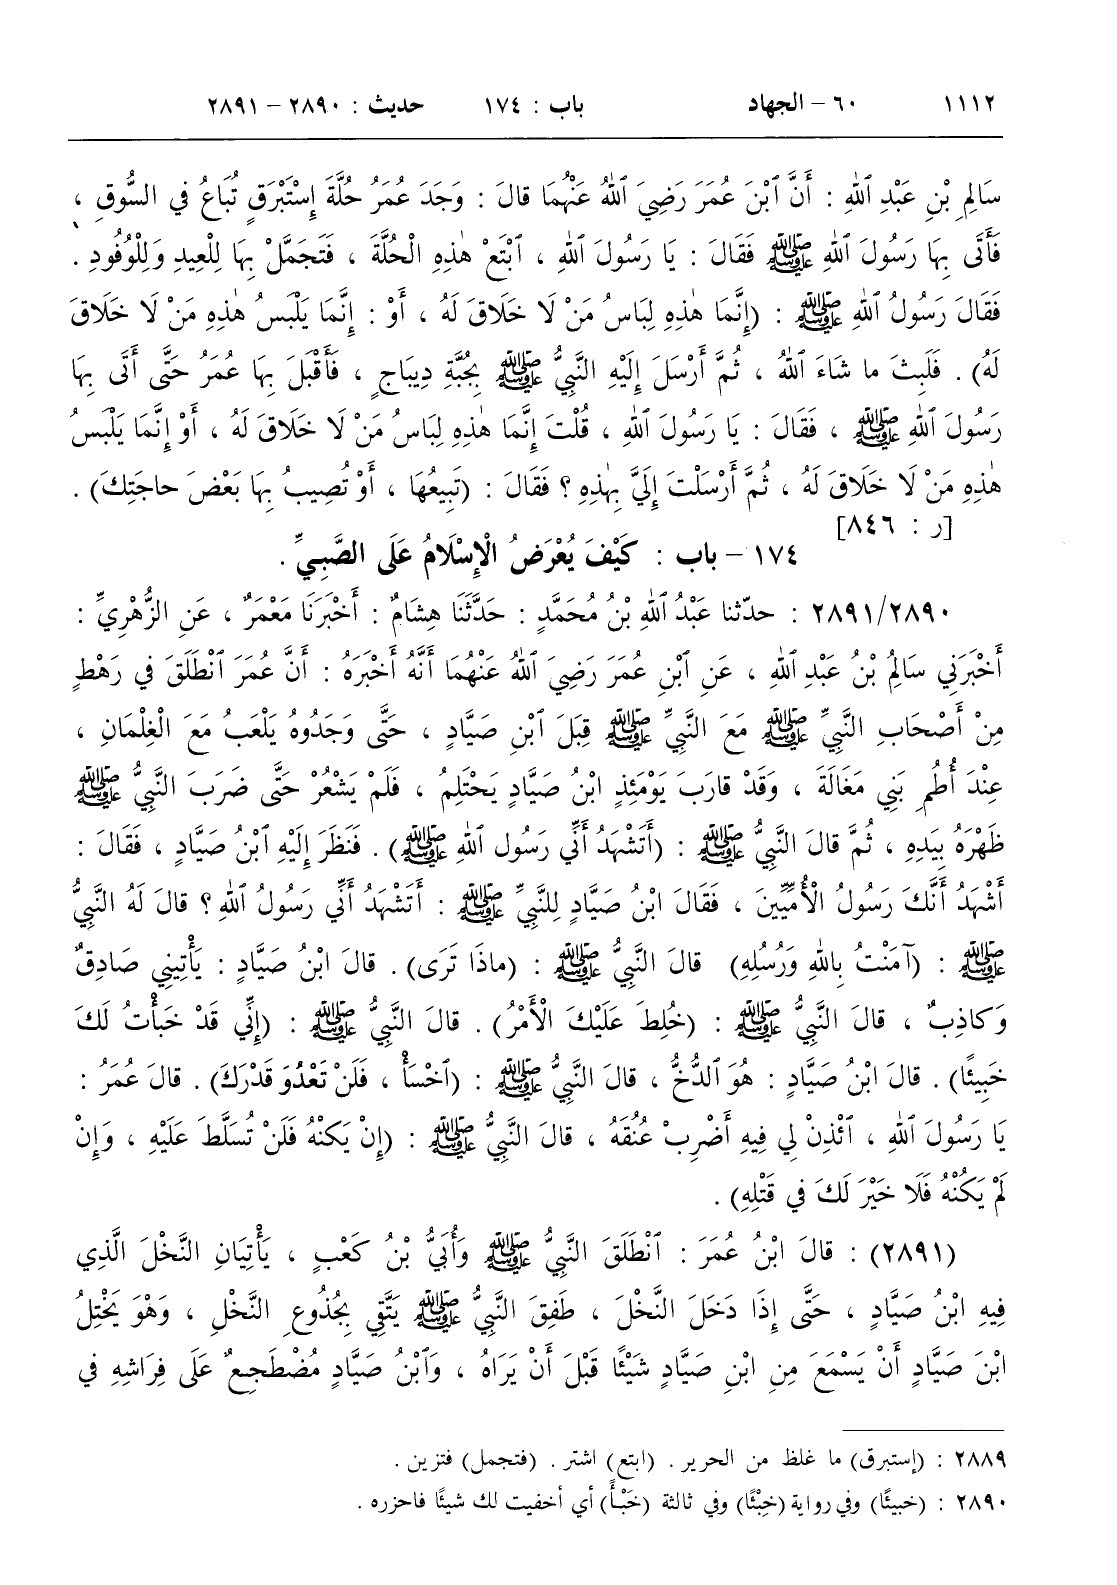 ١١١٢ ٦٠ – الجهاد باب : ١٧٤ حديث : ٢٨٩٠ – ٢٨٩١
سَالِمِ بْنِ عَبْدِ ٱللهِ : أَنَّ ٱبْنَ عُمَرَ رَضِيَ ٱللهُ عَنْهُمَا قالَ : وَجَدَ عُمَرُ حُلَّةَ إِسْتَبْرَقٍ تُبَاعُ في السُّوقِ ،
فَأَتَى بِهَا رَسُولَ ٱللهِ ﷺ فَقَالَ : يَا رَسُولَ ٱللهِ ، ٱبْتَعْ هٰذِهِ الْحُلَّةَ ، فَتَجَمَّلْ بِهَا لِلْعِيدِ وَلِلْوُفُودِ .
فَقَالَ رَسُولُ ٱللهِ ﷺ : (إِنَّمَا هٰذِهِ لِبَاسُ مَنْ لَا خَلَاقَ لَهُ ، أَوْ : إِنَّمَا يَلْبَسُ هٰذِهِ مَنْ لَا خَلَاقَ
لَهُ) . فَلَبِثَ ما شَاءَ ٱللهُ ، ثُمَّ أَرْسَلَ إِلَيْهِ النَّبِيُّ ﷺ بِجُبَّةِ دِيبَاجٍ ، فَأَقْبَلَ بِهَا عُمَرُ حَتَّى أَتَى بِهَا
رَسُولَ ٱللهِ ﷺ ، فَقَالَ : يَا رَسُولَ ٱللهِ ، قُلْتَ إِنَّمَا هٰذِهِ لِبَاسُ مَنْ لَا خَلَاقَ لَهُ ، أَوْ إِنَّمَا يَلْبَسُ
هٰذِهِ مَنْ لَا خَلَاقَ لَهُ ، ثُمَّ أَرْسَلْتَ إِلَيَّ بِهٰذِهِ ؟ فَقَالَ : (تَبِيعُهَا ، أَوْ تُصِيبُ بِهَا بَعْضَ حاجَتِكَ) .
[ر : ٨٤٦]
١٧٤ – باب : كَيْفَ يُعْرَضُ الْإِسْلَامُ عَلَى الصَّبِيِّ .
٢٨٩١/٢٨٩٠ : حدّثنا عَبْدُ ٱللهِ بْنُ مُحَمَّدٍ : حَدَّثَنَا هِشَامٌ : أَخْبَرَنَا مَعْمَرٌ ، عَنِ الزُّهْرِيِّ :
أَخْبَرَنِي سَالِمُ بْنُ عَبْدِ ٱللهِ ، عَنِ ابْنِ عُمَرَ رَضِيَ ٱللهُ عَنْهُمَا أَنَّهُ أَخْبَرَهُ : أَنَّ عُمَرَ ٱنْطَلَقَ في رَهْطٍ
مِنْ أَصْحَابِ النَّبِيِّ ﷺ مَعَ النَّبِيِّ ﷺ قِبَلَ ٱبْنِ صَيَّادٍ ، حَتَّى وَجَدُوهُ يَلْعَبُ مَعَ الْغِلْمَانِ ،
عِنْدَ أُطُمِ بَنِي مَغَالَةَ ، وَقَدْ قارَبَ يَوْمَئِذٍ ابْنُ صَيَّادٍ يَحْتَلِمُ ، فَلَمْ يَشْعُرْ حَتَّى ضَرَبَ النَّبِيُّ ﷺ
ظَهْرَهُ بِيَدِهِ ، ثُمَّ قالَ النَّبِيُّ ﷺ : (أَتَشْهَدُ أَنِّي رَسُول ٱللهِ ﷺ) . فَنَظَرَ إِلَيْهِ ٱبْنُ صَيَّادٍ ، فَقَالَ :
أَشْهَدُ أَنَّكَ رَسُولُ الْأُمِّيِّينَ ، فَقَالَ ابْنُ صَيَّادٍ لِلنَّبِيِّ ﷺ : أَتَشْهَدُ أَنِّي رَسُولُ ٱللهِ ؟ قالَ لَهُ النَّبِيُّ
ﷺ : (آمَنْتُ بِاللهِ وَرُسُلِهِ) قالَ النَّبِيُّ ﷺ : (ماذَا تَرَى) . قالَ ابْنُ صَيَّادٍ : يَأْتِينِي صَادِقٌ
وَكاذِبٌ ، قالَ النَّبِيُّ ﷺ : (خُلِطَ عَلَيْكَ الْأَمْرُ) . قالَ النَّبِيُّ ﷺ : (إِنِّي قَدْ خَبَأْتُ لَكَ
خَبِيئًا) . قالَ ابْنُ صَيَّادٍ : هُوَ ٱلدُّخُّ ، قالَ النَّبِيُّ ﷺ : (ٱخْسَأْ ، فَلَنْ تَعْدُوَ قَدْرَكَ) . قالَ عُمَرُ :
يَا رَسُولَ ٱللهِ ، ٱئْذِنْ لِي فِيهِ أَضْرِبْ عُنُقَهُ ، قالَ النَّبِيُّ ﷺ : (إِنْ يَكُنْهُ فَلَنْ تُسَلَّطَ عَلَيْهِ ، وَإِنْ
لَمْ يَكُنْهُ فَلَا خَيْرَ لَكَ في قَتْلِهِ) .
(٢٨٩١) : قالَ ابْنُ عُمَرَ : ٱنْطَلَقَ النَّبِيُّ ﷺ وَأُبَيُّ بْنُ كَعْبٍ ، يَأْتِيَانِ النَّخْلَ الَّذِي
فِيهِ ابْنُ صَيَّادٍ ، حَتَّى إِذَا دَخَلَ النَّخْلَ ، طَفِقَ النَّبِيُّ ﷺ يَتَّقِي بِجُذُوعِ النَّخْلِ ، وَهْوَ يَخْتِلُ
ابْنَ صَيَّادٍ أَنْ يَسْمَعَ مِنِ ابْنِ صَيَّادٍ شَيْئًا قَبْلَ أَنْ يَرَاهُ ، وَٱبْنُ صَيَّادٍ مُضْطَجِعٌ عَلَى فِرَاشِهِ في
٢٨٨٩ : (إستبرق) ما غلظ من الحرير . (ابتع) اشتر . (فتجمل) فتزين .
٢٨٩٠ : (خبيئًا) وفي رواية (خِبْئًا) وفي ثالثة (خَبْأً) أي أخفيت لك شيئًا فاحزره .